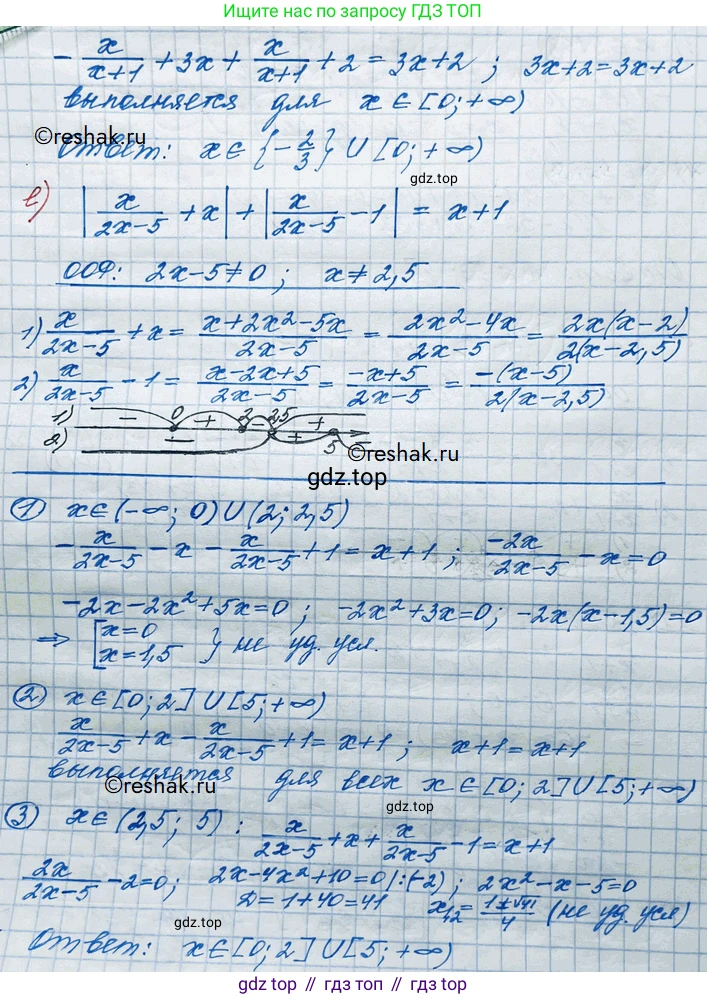 Ищите нас по запросу ГДЗ ТОП
- x/(x+1) + 3x + x/(x+1) + 2 = 3x+2 ; 3x+2=3x+2
выполняется для x ∈ [0; +∞)
©reshak.ru
Ответ: x ∈ {-2/3} ∪ [0; +∞)
gdz.top
в) |x/(2x-5) + x| + |x/(2x-5) - 1| = x+1
ООФ: 2x-5≠0 ; x≠2,5
1) x/(2x-5) + x = (x+2x²-5x)/(2x-5) = (2x²-4x)/(2x-5) = 2x(x-2)/2(x-2,5)
2) x/(2x-5) - 1 = (x-2x+5)/(2x-5) = (-x+5)/(2x-5) = -(x-5)/2(x-2,5)
1) - 0 + 2 - 2,5 +
2) - + 5 -
©reshak.ru
gdz.top
① x∈(-∞; 0)∪(2; 2,5)
- x/(2x-5) - x - x/(2x-5) + 1 = x+1 ; -2x/(2x-5) - x = 0
-2x-2x²+5x=0 ; -2x²+3x=0; -2x(x-1,5)=0
⇒ [x=0 x=1,5 } не уд. усл.
② x∈[0; 2]∪[5; +∞)
x/(2x-5) + x - x/(2x-5) + 1 = x+1 ; x+1=x+1
выполняется для всех x∈[0; 2]∪[5; +∞)
©reshak.ru
gdz.top
③ x∈(2,5; 5) : x/(2x-5) + x + x/(2x-5) - 1 = x+1
2x/(2x-5) - 2=0; 2x-4x²+10=0 |:(-2) ; 2x²-x-5=0
D=1+40=41 x₁,₂ = (1±√41)/4 (не уд. усл)
©reshak.ru
gdz.top
Ответ: x∈[0; 2]∪[5; +∞)
gdz.top // гдз.топ // gdz.top